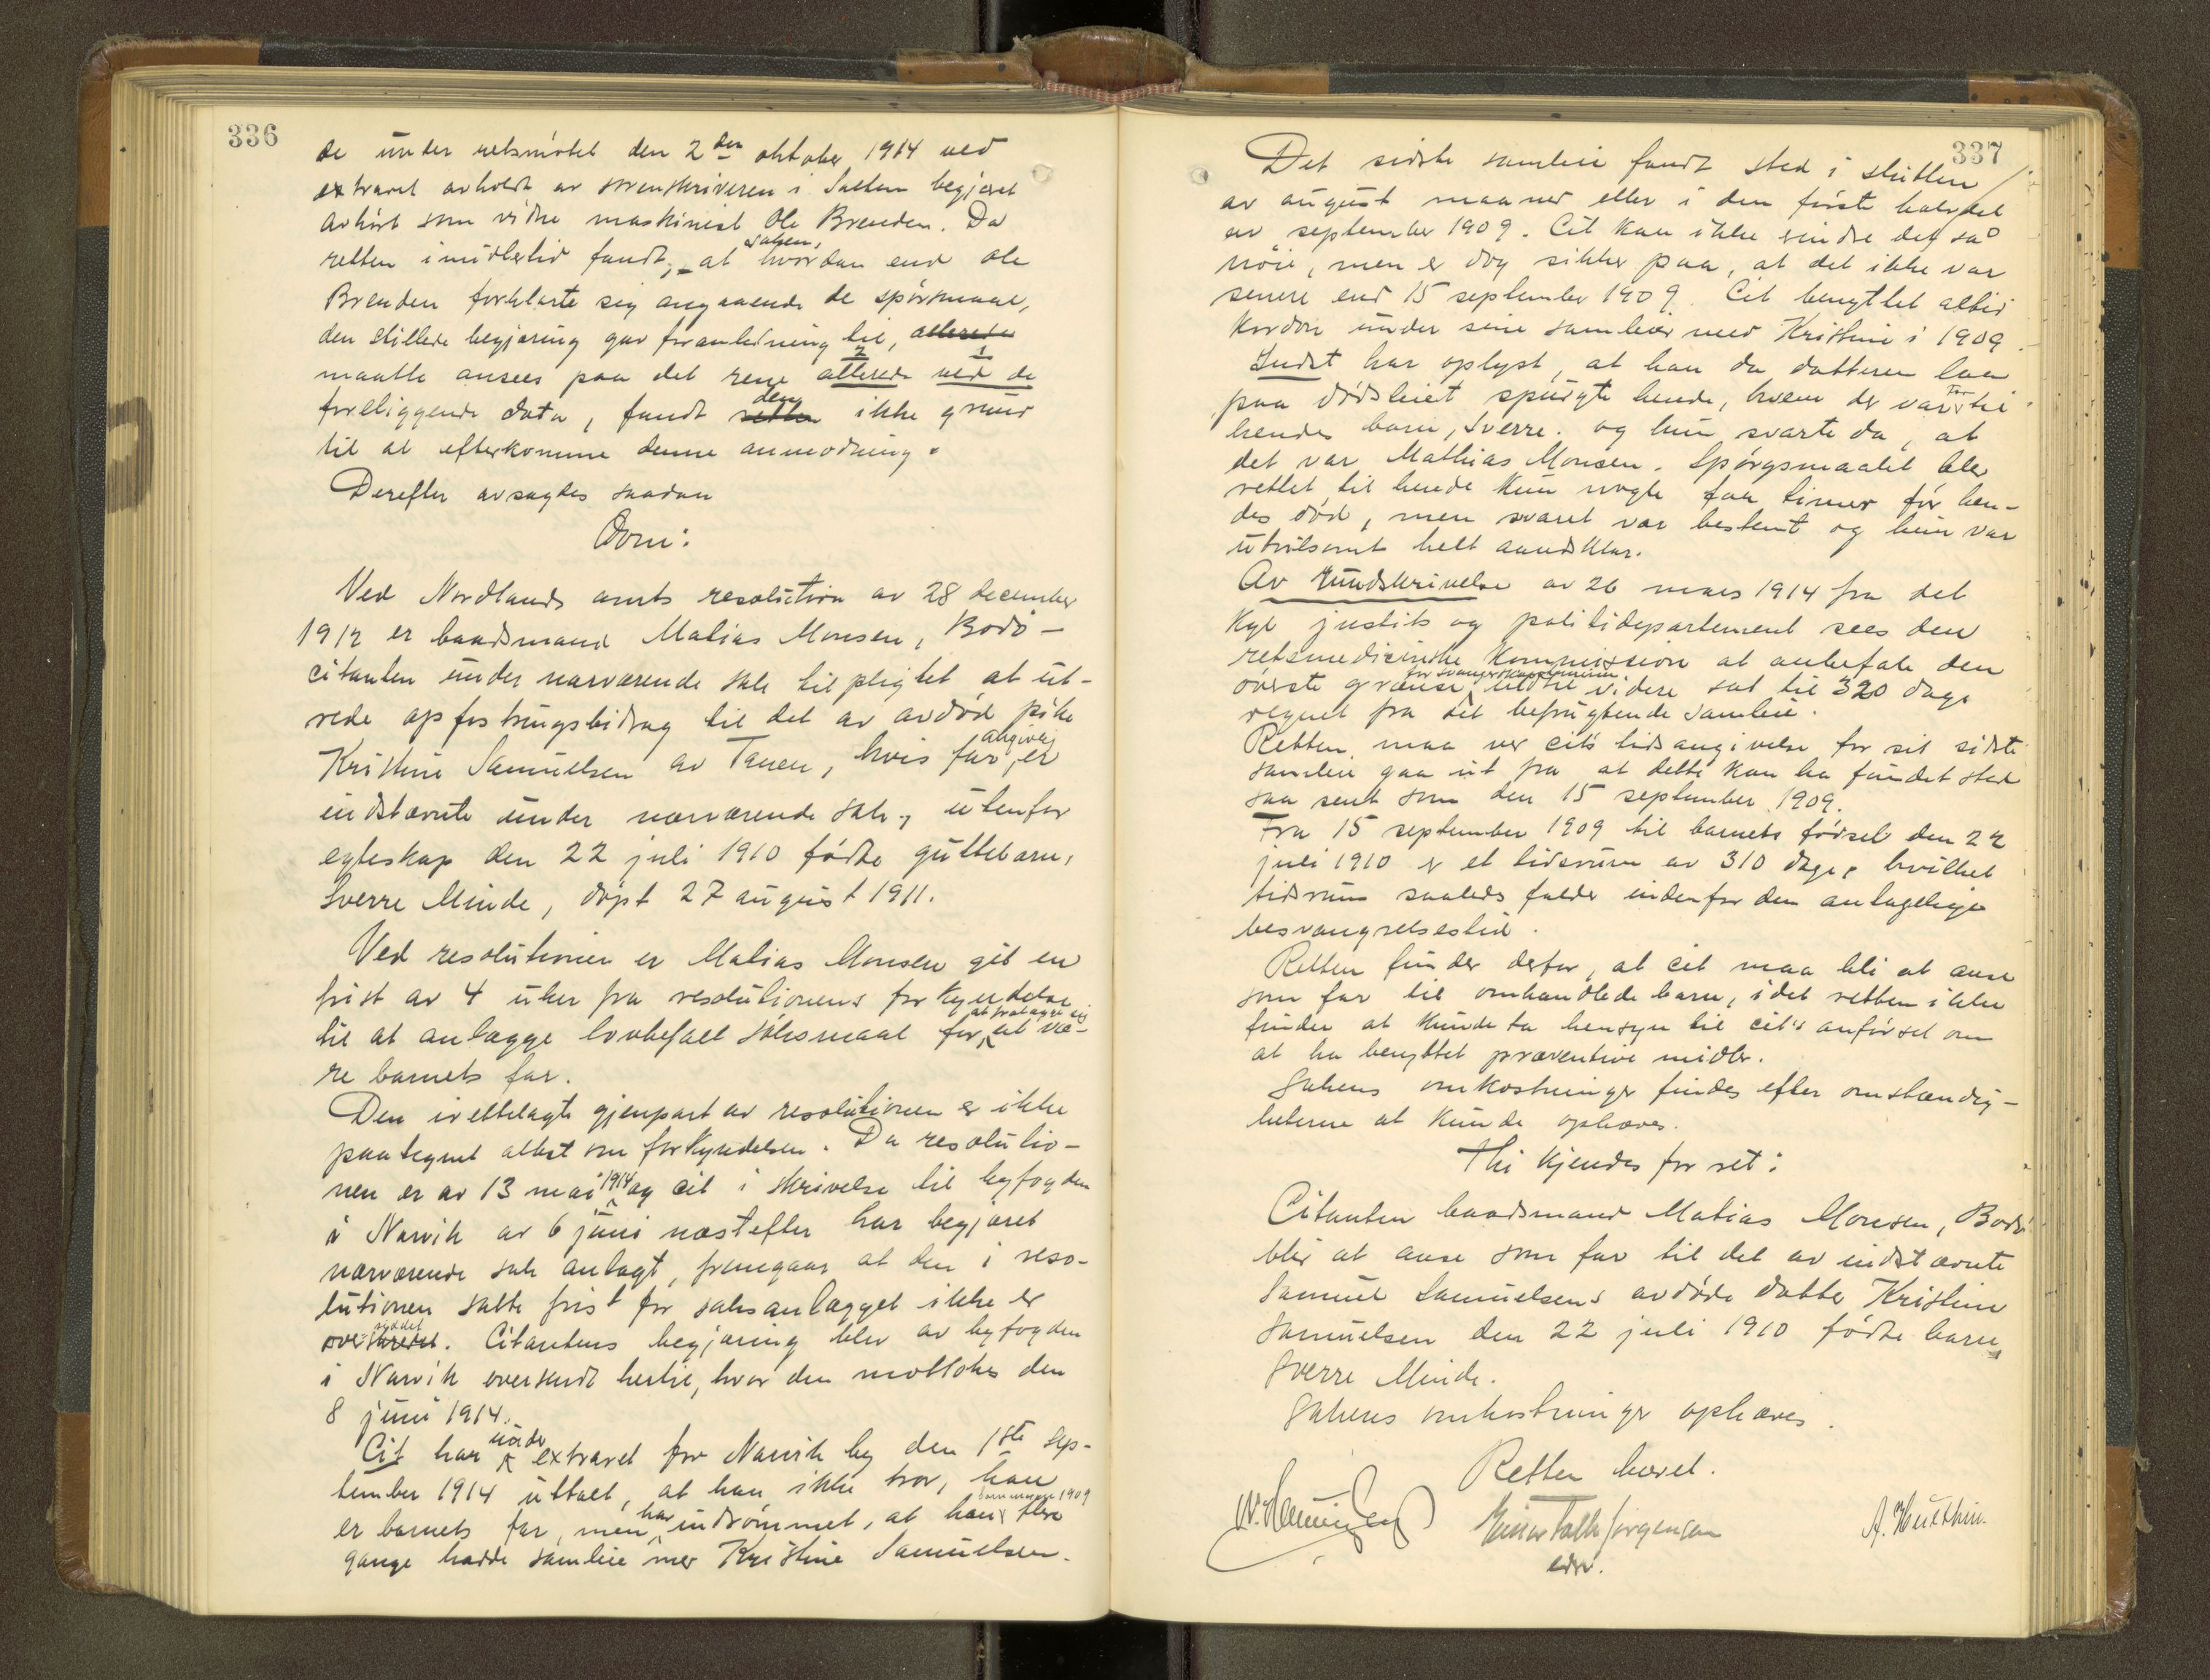 336
de under retsmötet den 2den oktober 1914 ved
extraret avholdt av sorenskriveren i Salten begjæret
avhört som vidne maskinist Ole Brenden. Da
retten imidlertid fandt, at saken, hvordan end Ole
Brenden forklarte sig angaaende de spörsmaal,
den stillede begjæring gav foranledning til, allerede
maatte ansees paa det rene allerede ved de
foreliggende data, fandt retten den ikke grund
til at efterkomme denne anmodning.
Derefter avsagdes saadan
Dom:
Ved Nordlands amts resolution av 28 december
1912 er baadsmand Matias Monsen, Bodö –
citanten under nærværende sak tilpligtet at ut-
rede opfostringsbidrag til det av avdöd pike
Kristine Samuelsen av Tanen, hvis far angivelig er
indstævnte under nærværende sak, utenfor
egteskap den 22 juli 1910 födte guttebarn,
Sverre Minde, döpt 27 august 1911.
Ved resolutionen er Matias Monsen git en
frist av 4 uker fra resolutionens forkyndelse
til at anlægge lovbefalt söksmaal for at fralægge sig at væ-
re barnets far.
Den i rettelagte gjenpart av resolutionen er ikke
paategnet attest om forkyndelsen. Da resolutio-
nen er av 13 mai 1914 og cit i skrivelse til byfogden
i Narvik av 6 juni næstefter har begjæret
nærværende sak anlagt, fremgaar at den i reso-
lutionen satte frist for saksanlægget ikke er
overskredet. Citantens begjæring blev av byfogden
i Narvik oversendt hertil, hvor den mottokes den
8 juni 1914.
Cit har under extraret for Narvik by den 1ste sep-
tember 1914 uttalt, at han ikke tror, han
er barnets far, men har indrömmet, at han sommeren 1909 flere
gange hadde samleie med Kristine Samuelsen.
337
Det sidste samleie fandt sted i slutten
av august maaned eller i den förste halvdel
av september 1909. Cit kan ikke erindre det saa
nöie, men er dog sikker paa, at det ikke var
senere end 15 september 1909. Cit benyttet altid
kondon under sine samleier med Kristine i 1909.
Indst har oplyst, at han da datteren laa
paa dödsleiet spurgte hende, hvem der var far til
hendes barn, Sverre. og hun svarte da, at
det var Mathias Monsen. Spörgsmaalet blev
rettet til hende kun nogle faa timer för hen-
des död, men svaret var bestemt og hun var
utvilsomt helt aandsklar.
Av rundskrivelse av 26 mars 1914 fra det
kgl justits og politidepartement sees den
retsmedicinske kommission at anbefale den
överste grænse for svangerskapstiden indtil videre sat til 320 dage
regnet fra det befrugtende samleie.
Retten maa ved cits tidsangivelse for sit sidste
samleie gaa ut fra at dette kan ha fundet sted
saa sent som den 15 september 1909.
Fra 15 september 1909 til barnets födsel den 22
juli 1910 er et tidsrum av 310 dage, hvilket
tidsrum saaledes falder indenfor den antagelige
besvangrelsestid.
Retten finder derfor, at cit maa bli at anse
som far til omhandlede barn, idet retten ikke
finder at kunde ta hensyn til cit's anförsel om
at ha benyttet præventive midler.
Sakens omkostninger findes efter omstændig-
heterne at kunde ophæves.
Thi kjendes for ret:
Citanten baadsmand Matias Monsen, Bodö
blir at anse som far til det av indstævnte
Samuel Samuelsens avdöde datter Kristine
Samuelsen den 22 juli 1910 födte barn,
Sverre Minde.
Sakens omkostninger ophæves.
Retten hævet.
Einar Falk Jörgensen
edsv.